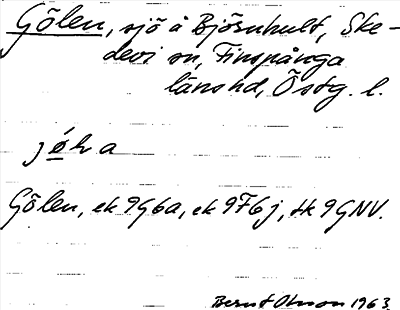 Gölen, sjö å Björnhult, Ske-
devi sn, Finspånga
länshd, Östg. l.
jø̀ḷa
Gölen, ek 9G6a, ek 9F6j, tk 9GNV.
Bernt Olsson 1963